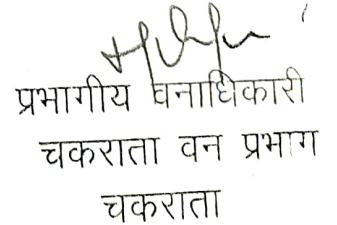 प्रभागीय वनाधिकारी
चकराता वन प्रभाग
चकराता